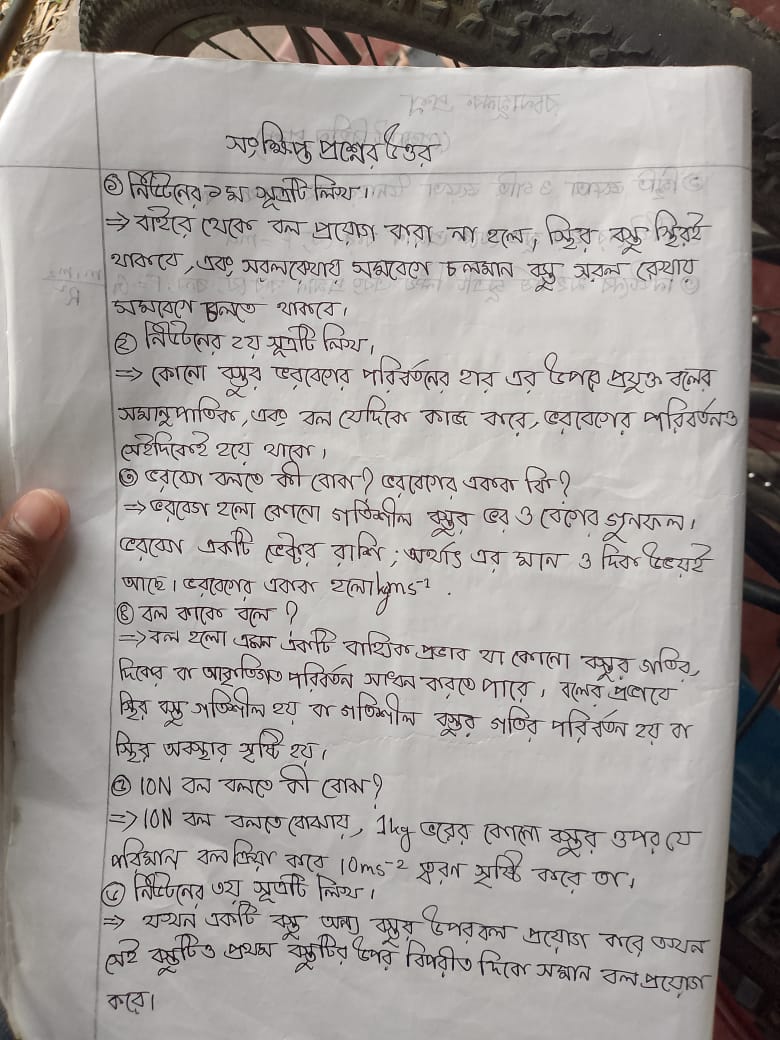 সংক্ষিপ্ত প্রশ্নের উত্তর
① নিউটনের ১ম সূত্রটি লিখ।
⇒ বাইরে থেকে বল প্রয়োগ করা না হলে, স্থির বস্তু স্থিরই
থাকবে, এবং সরলরেখায় সমবেগে চলমান বস্তু সরল রেখায়
সমবেগে চলতে থাকবে।
② নিউটনের ২য় সূত্রটি লিখ।
⇒ কোনো বস্তুর ভরবেগের পরিবর্তনের হার এর উপর প্রযুক্ত বলের
সমানুপাতিক, এবং বল যেদিকে কাজ করে, ভরবেগের পরিবর্তনও
সেইদিকেই হয়ে থাকে।
③ ভরবেগ বলতে কী বোঝ? ভরবেগের একক কি?
⇒ ভরবেগ হলো কোনো গতিশীল বস্তুর ভর ও বেগের গুনফল।
ভরবেগ একটি ভেক্টর রাশি, অর্থাৎ এর মান ও দিক উভয়ই
আছে। ভরবেগের একক হলো kgms⁻¹.
④ বল কাকে বলে ?
⇒ বল হলো এমন একটি বাহ্যিক প্রভাব যা কোনো বস্তুর গতির,
দিকের বা আকৃতিগত পরিবর্তন সাধন করতে পারে। বলের প্রভাবে
স্থির বস্তু গতিশীল হয় বা গতিশীল বস্তুর গতির পরিবর্তন হয় বা
স্থির অবস্থার সৃষ্টি হয়।
⑤ 10N বল বলতে কী বোঝ?
⇒ 10N বল বলতে বোঝায়, 1kg ভরের কোনো বস্তুর ওপর যে
পরিমান বল ক্রিয়া করে 10ms⁻² ত্বরণ সৃষ্টি করে তা।
⑥ নিউটনের ৩য় সূত্রটি লিখ।
⇒ যখন একটি বস্তু অন্য বস্তুর উপর বল প্রয়োগ করে তখন
সেই বস্তুটিও প্রথম বস্তুটির উপর বিপরীত দিকে সমান বল প্রয়োগ
করে।